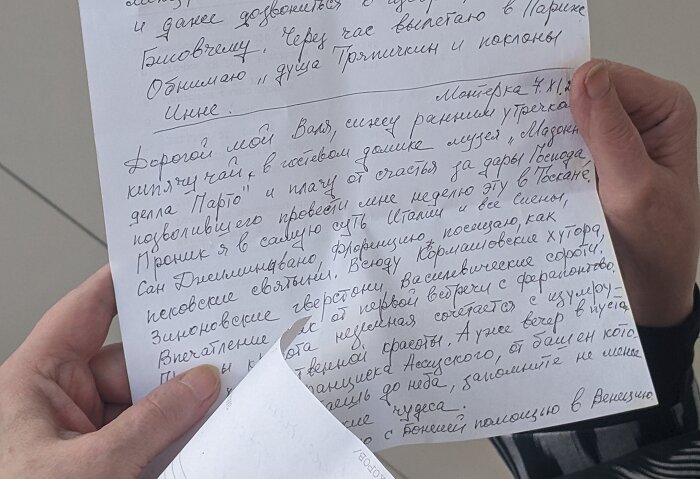 и далее дозвониться
Бисовчему. Через час вылетаю в Париж
Обнимаю „душа Тряпичкин и поклоны
Инне.
Монтерка 7.XI.2
Дорогой мой Валя, сижу ранним утречком
кипячу чай, в гостевом домике музея „Мадонна
делла Парто" и плачу от счастья за дары Господа,
позволившего провести мне неделю эту в Тоскане,
Проник я в самую суть Италии и все Сиены,
Сан Джиминьяно, Флоренцию, посещаю, как
псковские святыни. Всюду Кормашовские хутора,
Зиноновские гверстони, Василевические сороти.
Впечатление как от первой встречи с Фарапонтово.
красота неземная сочетается с изумру-
твенной красоты. А уже вечер в пусты
ранциска Ассизского, от башен кото
до неба, запомните не менее
чудеса.
с Божией помощью в Венецию